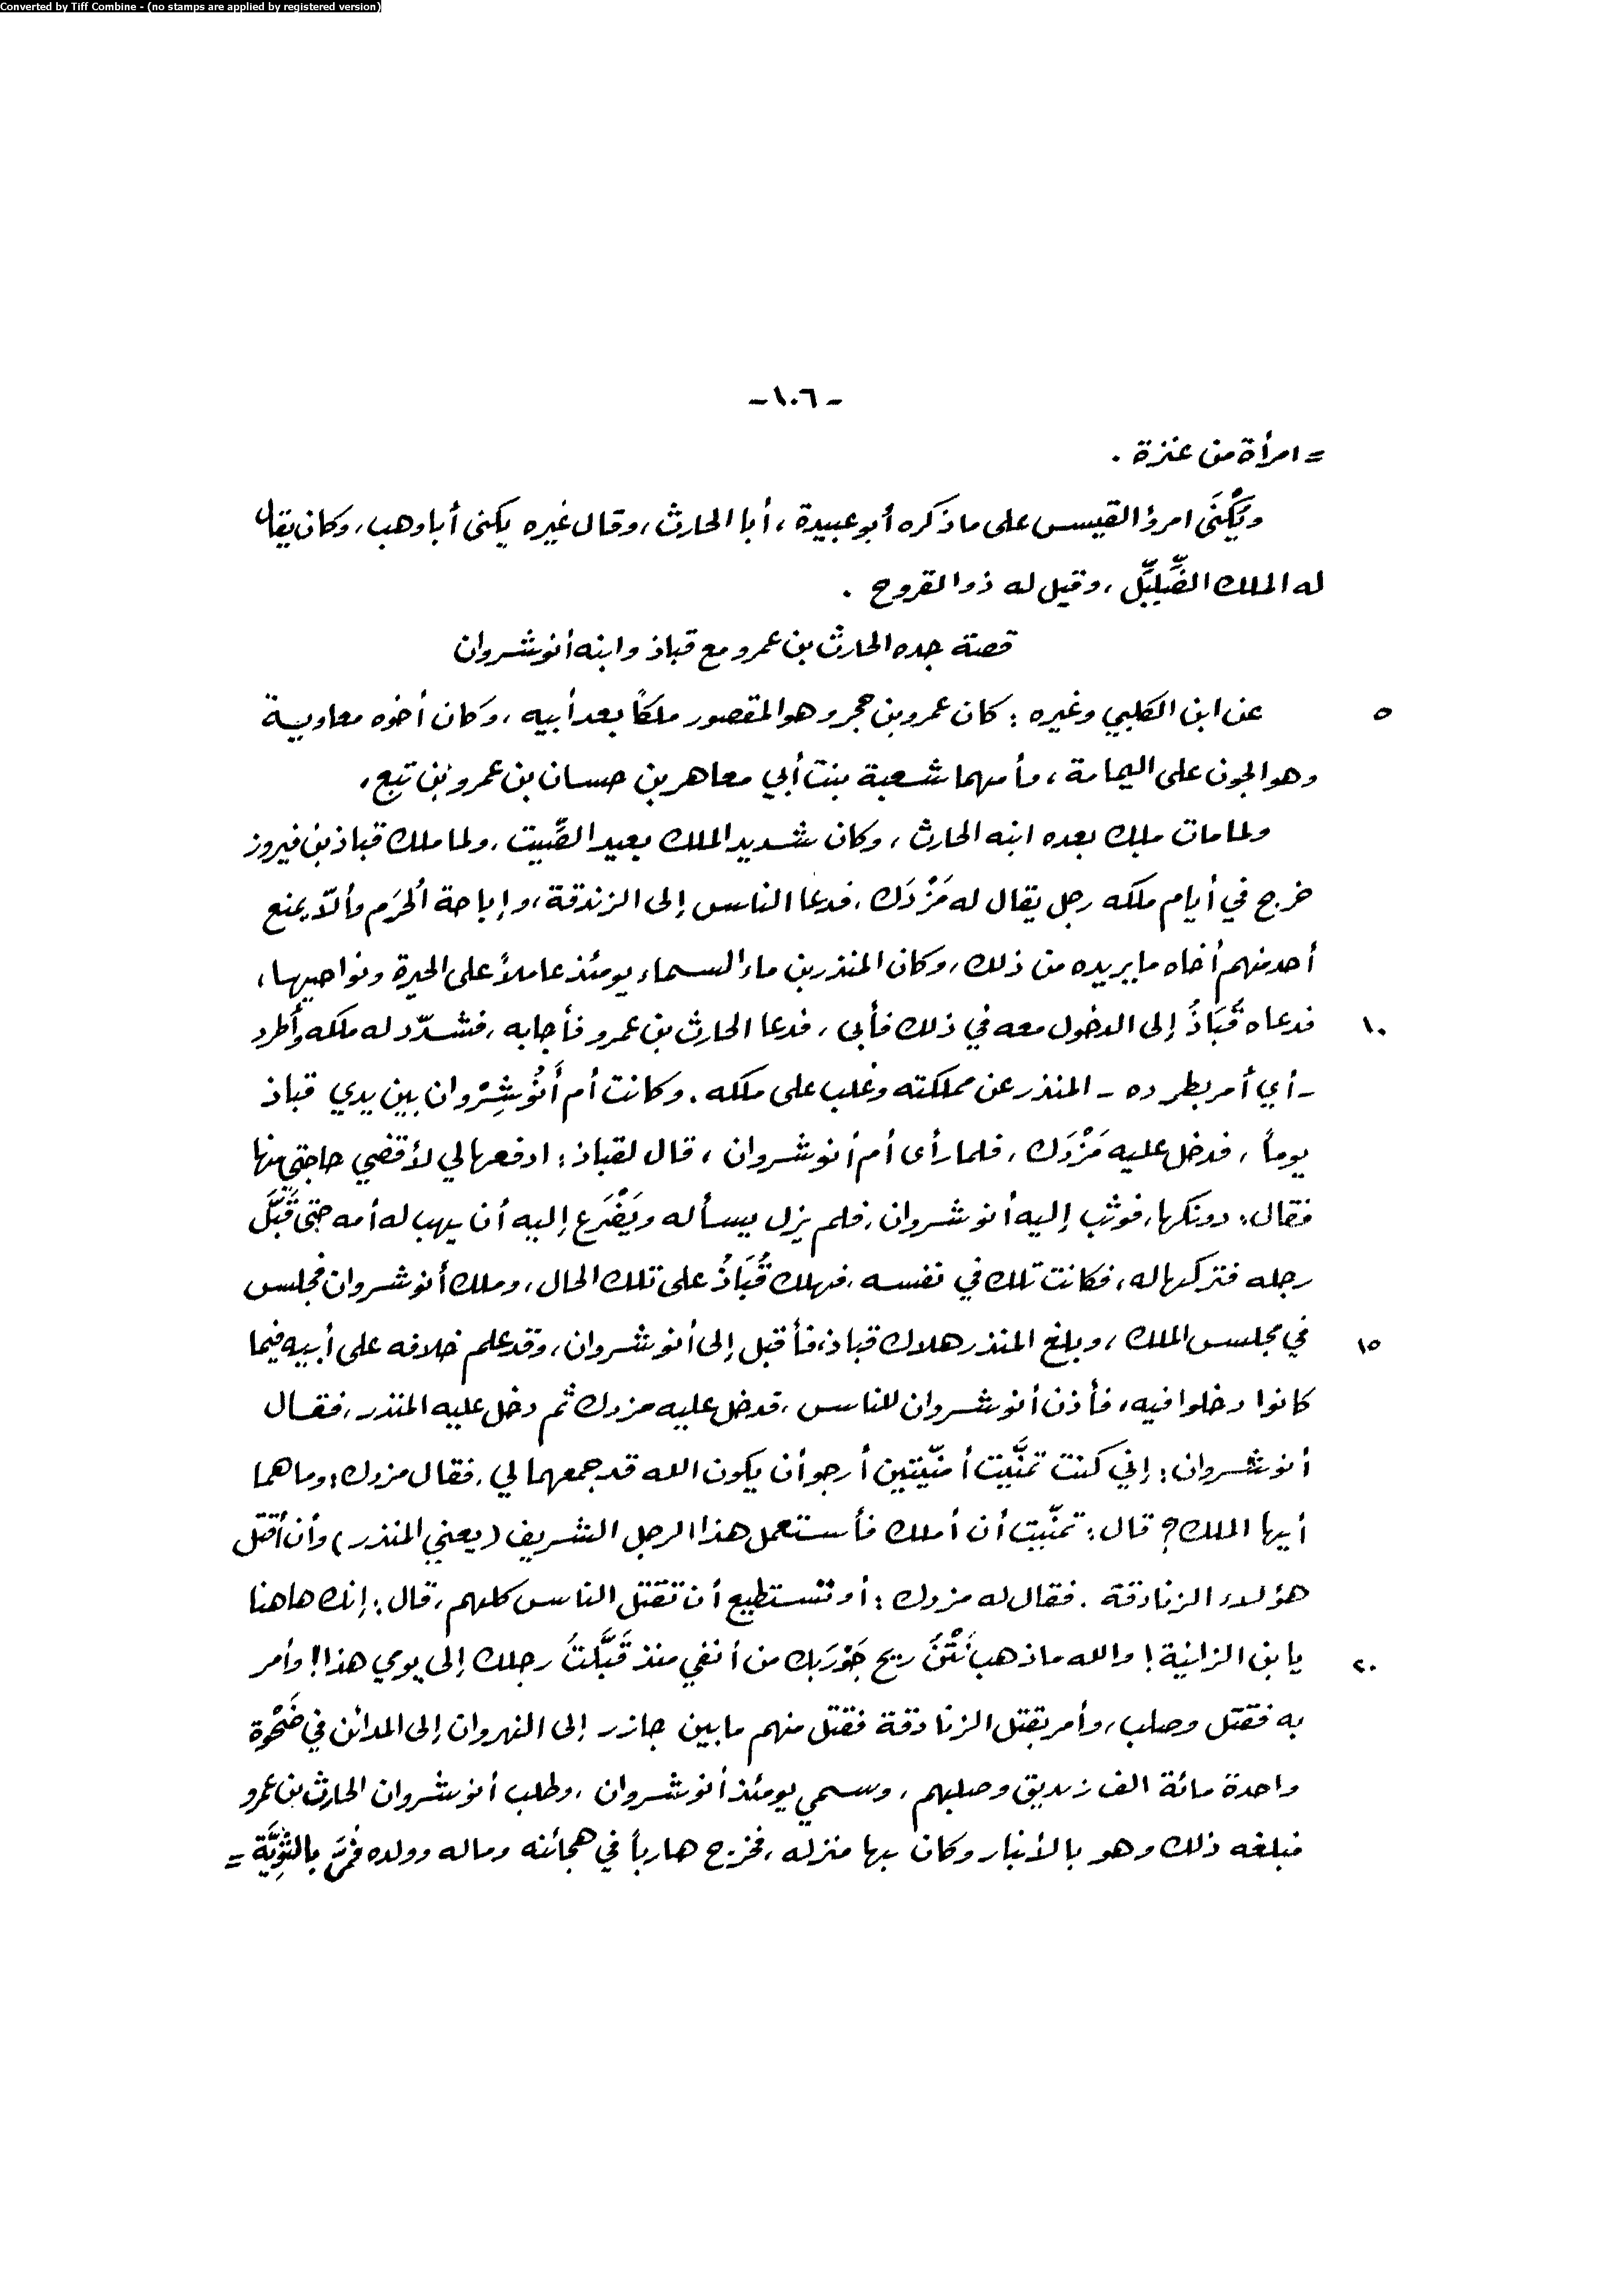 Converted by Tiff Combine - (no stamps are applied by registered version)
- ١٠٦ -
= امرأة من عنزة .
ويُكْنَى امرؤ القيس على ما ذكره أبو عبيدة ، أبا الحارث ، وقال غيره يكنى أبا وهب ، وكان يقال
له الملك الضِّلِيِّل ، وقيل له ذو القروح .
قصة جده الحارث بن عمرو مع قباذ وابنه أنوشروان
عن ابن الكلبي وغيره : كان عمرو بن حجر وهو المقصور ملكاً بعد أبيه ، وكان أخوه معاوية ٥
وهو الجون على اليمامة ، وأمهما شعبة بنت أبي معاهر بن حسان بن عمرو بن تبع ،
ولما مات ملك بعده ابنه الحارث ، وكان شديد الملك بعيد الصِّيت ، ولما ملك قباذ بن فيروز
خرج في أيام ملكه رجل يقال له مَزْدَك ، فدعا الناس إلى الزندقة ، وإباحة الحُرَم وألّا يمنع
أحد منهم أخاه ما يريده من ذلك ، وكان المنذر بن ماء السماء يومئذ عاملاً على الحيرة ونواحيها ،
فدعاه قُبَاذُ إلى الدخول معه في ذلك فأبى ، فدعا الحارث بن عمرو فأجابه ، فشدّد له ملكه وأطرد ١٠
- أي أمر بطرده - المنذر عن مملكته وغلب على ملكه . وكانت أم أَنُوشِرْوان بين يدي قباذ
يوماً ، فدخل عليه مَزْدَك ، فلما رأى أم أنوشروان ، قال لقباذ : ادفعها لي لأقضي حاجتي منها
فقال : دونكها ، فوثب إليه أنوشروان ، فلم يزل يسأله ويَضْرَع إليه أن يهب له أمه حتى قَبَّلَ
رجله فتركها له ، فكانت تلك في نفسه ، فهلك قُبَاذُ على تلك الحال ، وملك أنوشروان فجلس
في مجلس الملك ، وبلغ المنذر هلاك قباذ ، فأقبل إلى أنوشروان ، وقد علم خلافه على أبيه فيما ١٥
كانوا دخلوا فيه ، فأذن أنوشروان للناس ، فدخل عليه مزدك ثم دخل عليه المنذر ، فقال
أنوشروان : إني كنت تمنَّيت أمنيّتين أرجو أن يكون الله قد جمعهما لي ، فقال مزدك : وما هما
أيها الملك ؟ قال : تمنّيت أن أملك فأستعمل هذا الرجل الشريف ( يعني المنذر ) وأن أقتل
هؤلاء الزنادقة . فقال له مزدك : أو تستطيع أن تقتل الناس كلهم ، قال : إنك هاهنا
يا بن الزانية ! والله ما ذهب نَتْنُ ريح جَوْرَبك من أنفي منذ قَبَّلتُ رجلك إلى يومي هذا ! وأمر ٢٠
به فقتل وصلب ، وأمر بقتل الزنادقة فقتل منهم ما بين جازر إلى النهروان إلى المدائن في ضَحْوة
واحدة مائة الف زنديق وصلبهم ، وسمي يومئذ أنوشروان ، وطلب أنوشروان الحارث بن عمرو
فبلغه ذلك وهو بالأنبار وكان بها منزله ، فخرج هارباً في هجائنه وماله وولده فمَرَّ بالثَّوِيَّة =